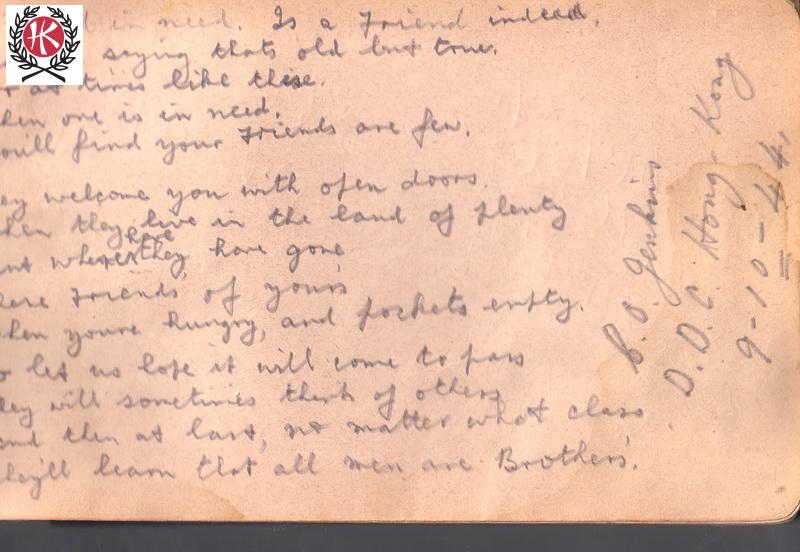 in need. Is a Friend indeed,
saying thats old but true.
at times like these.
hen one is in need,
ou'll find your Friends are few.
ey welcome you with open doors.
hen they live in the land of plenty
ut where have they have gone
ese Friends of yours
hen youre hungry, and pockets empty.
o let us hope it will come to pass
hey will sometimes think of others
and then at last, no matter what class
hey'll learn that all men are Brothers.
Jenkins
D.D.C. Hong-Kong
9-10-44.
HK